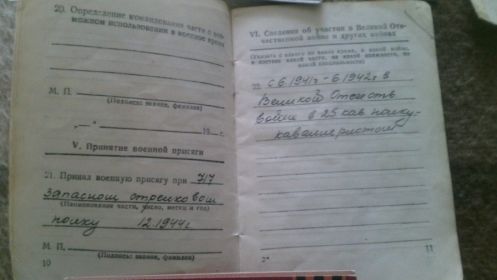 20. Определение командования части о воз-
можном использовании в военное время
М. П.
(Подпись: звание, фамилия)
„ “ 19 г.
V. Принятие военной присяги
21. Принял военную присягу при 717
запасном стрелковом
(Наименование части, число, месяц и год)
полку 12.1944 г
М. П.
(Подпись: звание, фамилия)
10
VI. Сведения об участии в Великой Оте-
чественной войне и других войнах
(Указать с какого по какое время, в какой войне,
в составе какой части, на какой должности, по
какой специальности)
22. с 6.1941 г - 6 1942 г в
Великой Отечеств
войне в 25 кав полку-
кавалеристом
2*
11